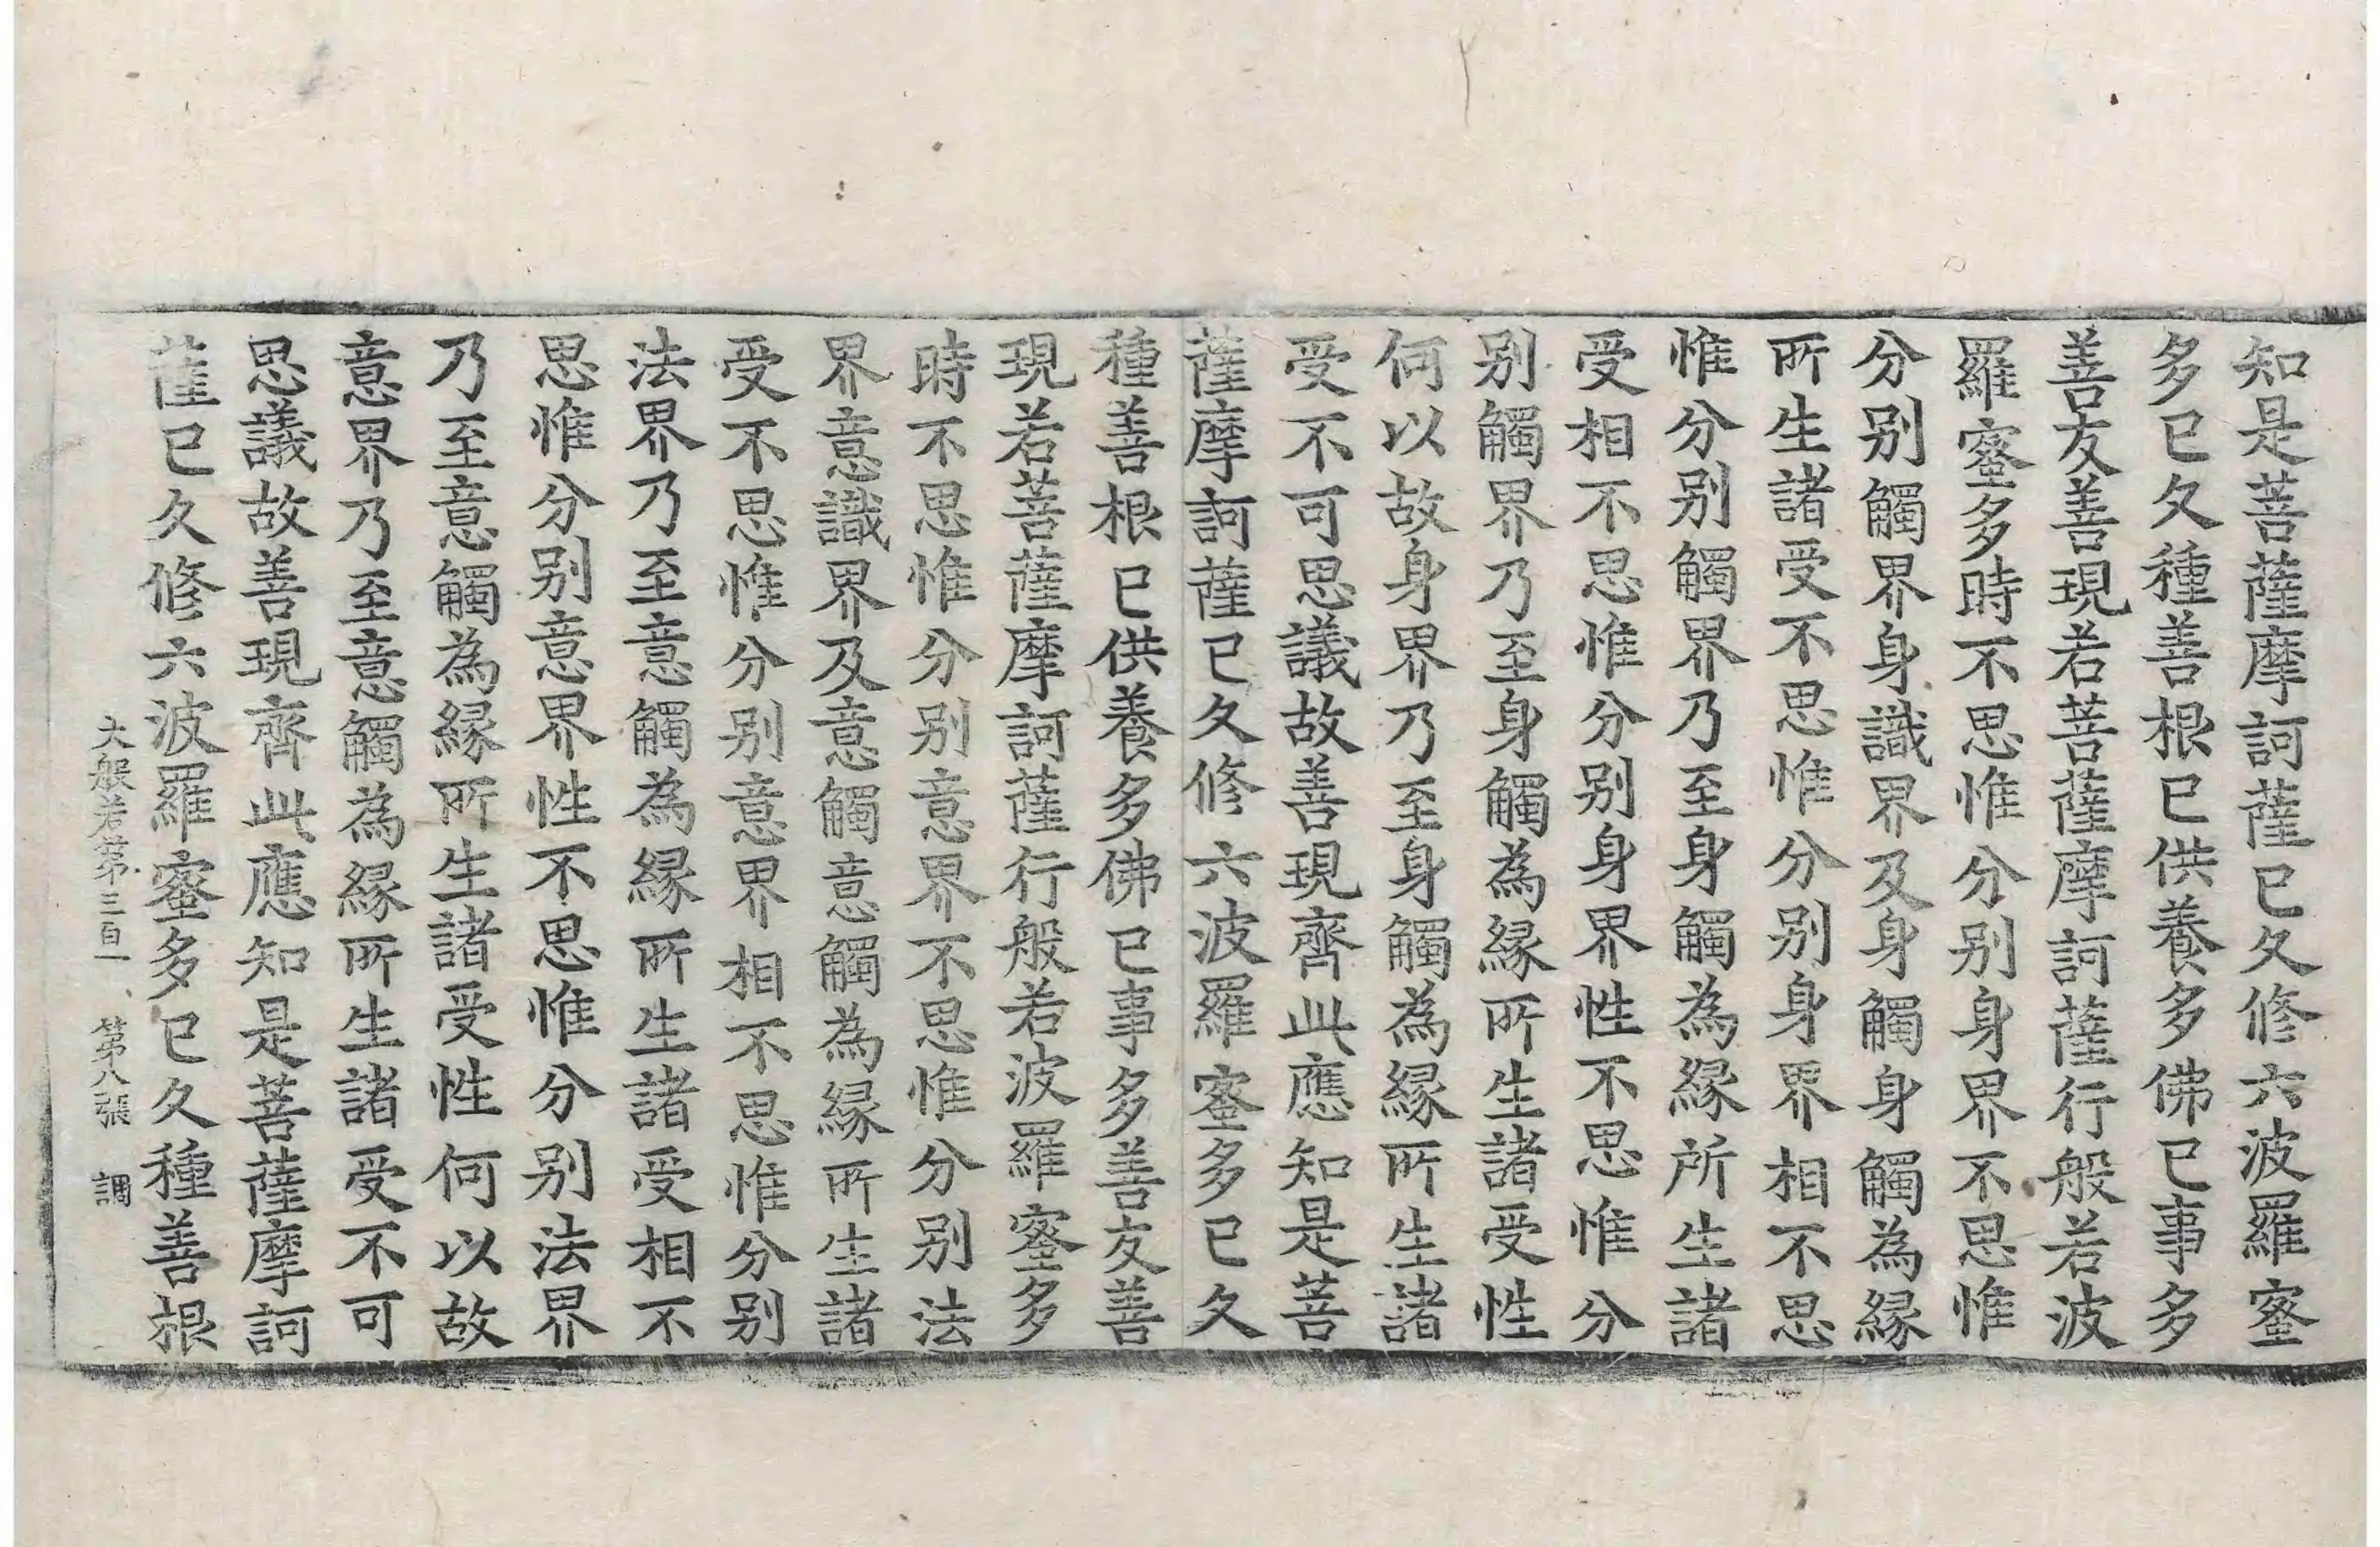 知是菩薩摩訶薩已久修六波羅蜜
多已久種善根已供養多佛已事多
善友善現若菩薩摩訶薩行般若波
羅蜜多時不思惟分别身界不思惟
分别觸界身識界及身觸身觸為緣
所生諸受不思惟分别身界相不思
惟分别觸界乃至身觸為緣所生諸
受相不思惟分别身界性不思惟分
别觸界乃至身觸為緣所生諸受性
何以故身界乃至身觸為緣所生諸
受不可思議故善現齊此應知是菩
薩摩訶薩已久修六波羅蜜多已久
種善根已供養多佛已事多善友善
現若菩薩摩訶薩行般若波羅蜜多
時不思惟分别意界不思惟分别法
界意識界及意觸意觸為緣所生諸
受不思惟分别意界相不思惟分别
法界乃至意觸為緣所生諸受相不
思惟分别意界性不思惟分别法界
乃至意觸為緣所生諸受性何以故
意界乃至意觸為緣所生諸受不可
思議故善現齊此應知是菩薩摩訶
薩已久修六波羅蜜多已久種善根
大般若第三百一 第八張 調